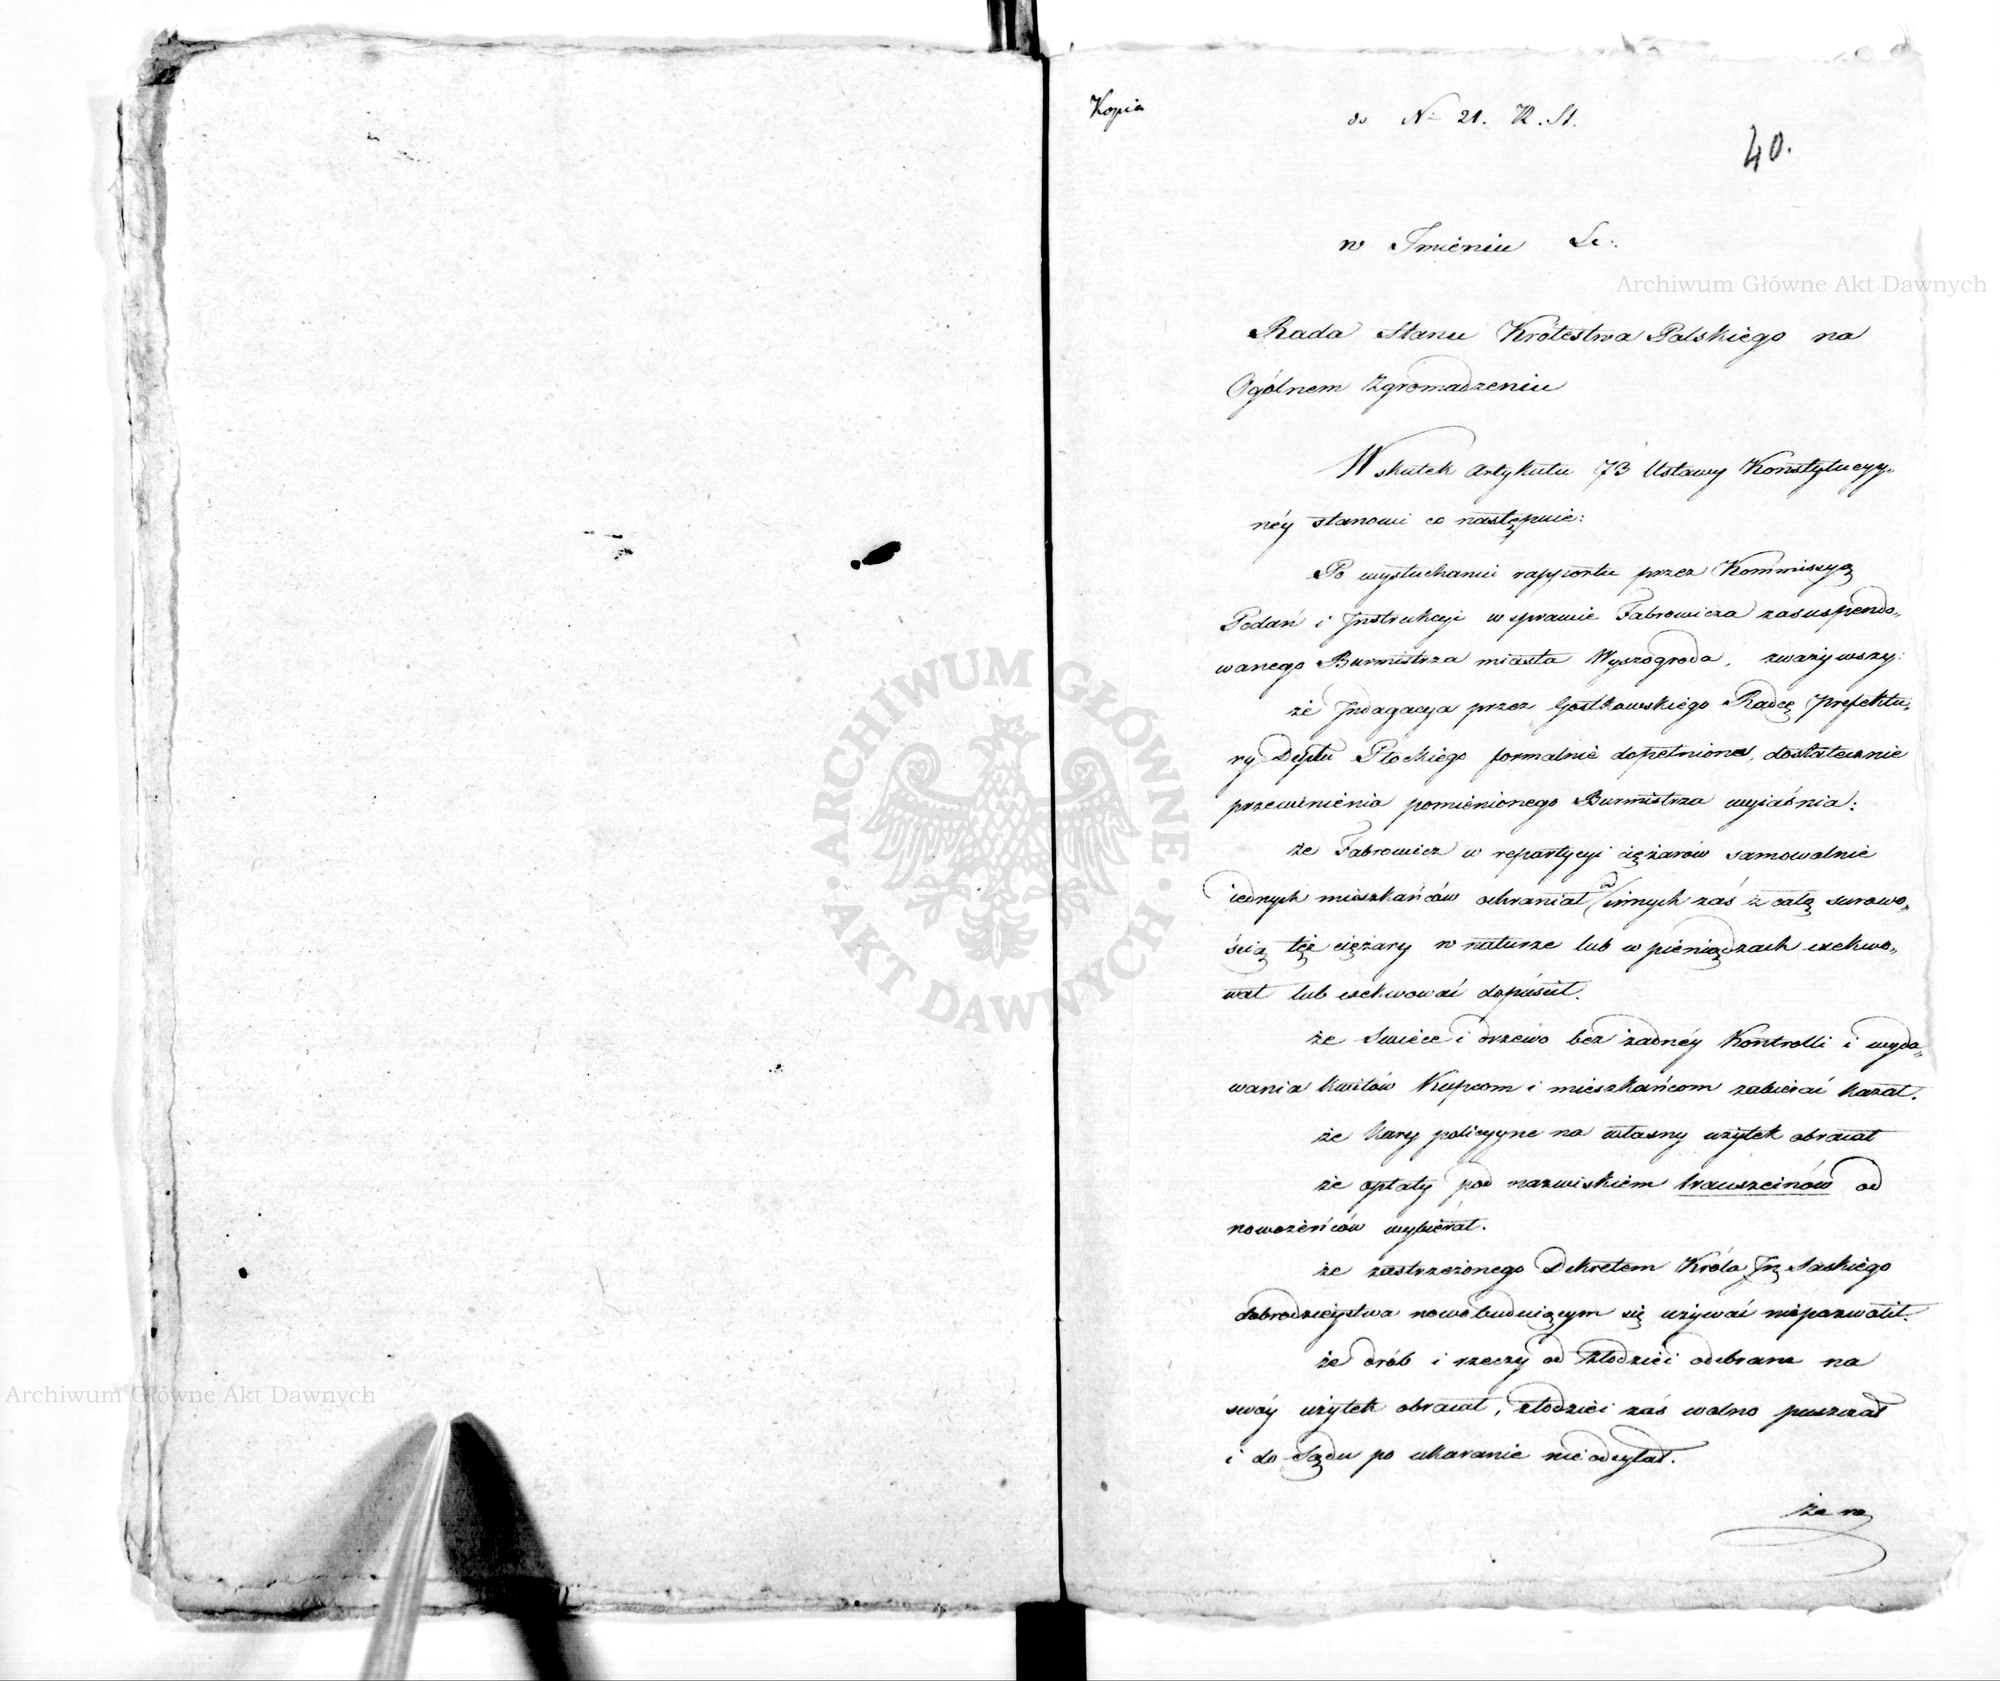 Kopia
do No 21. R. St.
40.
w Jmieniu &c:
Rada Stanu Krolestwa Polskiego na
Ogólnem Zgromadzeniu
W skutek Artykułu 73 Ustawy Konstytucyy„
néy stanowi co następuie:
Po wysłuchaniu rapportu przez Kommissyą
Podań i Jnstrukcyi w sprawie Fabrowicza zasuspendo„
wanego Burmistrza miasta Wyszogroda, zważywszy:
że Jndagacya przez Gostkowskiego Radcę Prefektu„
ry Deptu Płockiego formalnie dopełniona, dostatecznie
przewinienia pomienionego Burmistrza wyiaśnia:
że Fabrowicz w repartycyi ciężarów samowolnie
iednych mieszkańców ochraniał a innych zaś z całą surowo„
ścią też ciężary w naturze lub w pieniądzach exekwo„
wał lub exekwować dopuścił.
że Swiece i drzewo bez żadnéy Kontrolli i wyda„
wania kwitów Kupcom i mieszkańcom zabierać kazał.
że kary policyyne na własny użytek obracał
że opłaty pod nazwiskiem trauszeinów od
nowożeńców wybierał.
że zastrzeżonego Dekretem Króla Jg Saskiego
dobrodzieystwa nowo buduiącym się używać niepozwolił.
że drób i rzeczy od złodziei odebrane na
swóy użytek obracał, złodziei zaś wolno puszczał
i do Sądu po ukaranie nie odsyłał.
że na
Archiwum Główne Akt Dawnych
Archiwum Główne Akt Dawnych
ARCHIWUM GŁÓWNE
AKT DAWNYCH